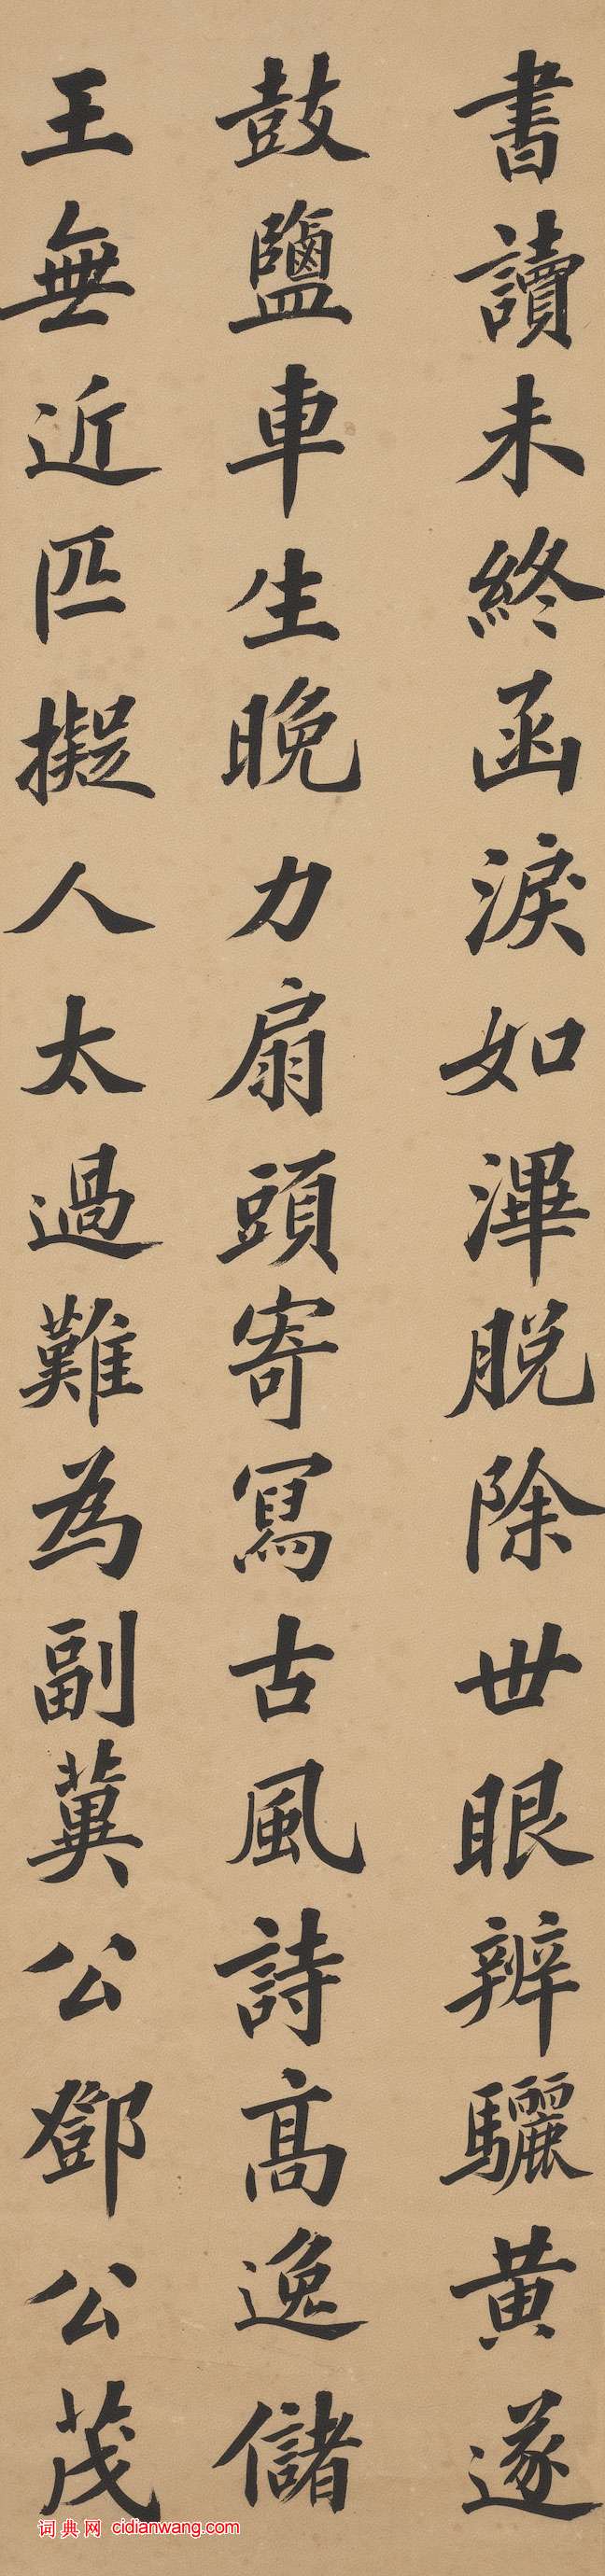 書讀未終函淚如滭脫除世眼辨驪黃遂
鼓鹽車生晚力扇頭寄寫古風詩高逸儲
王無近匹擬人太過難為副冀公鄧公茂
词典网 cidianwang.com